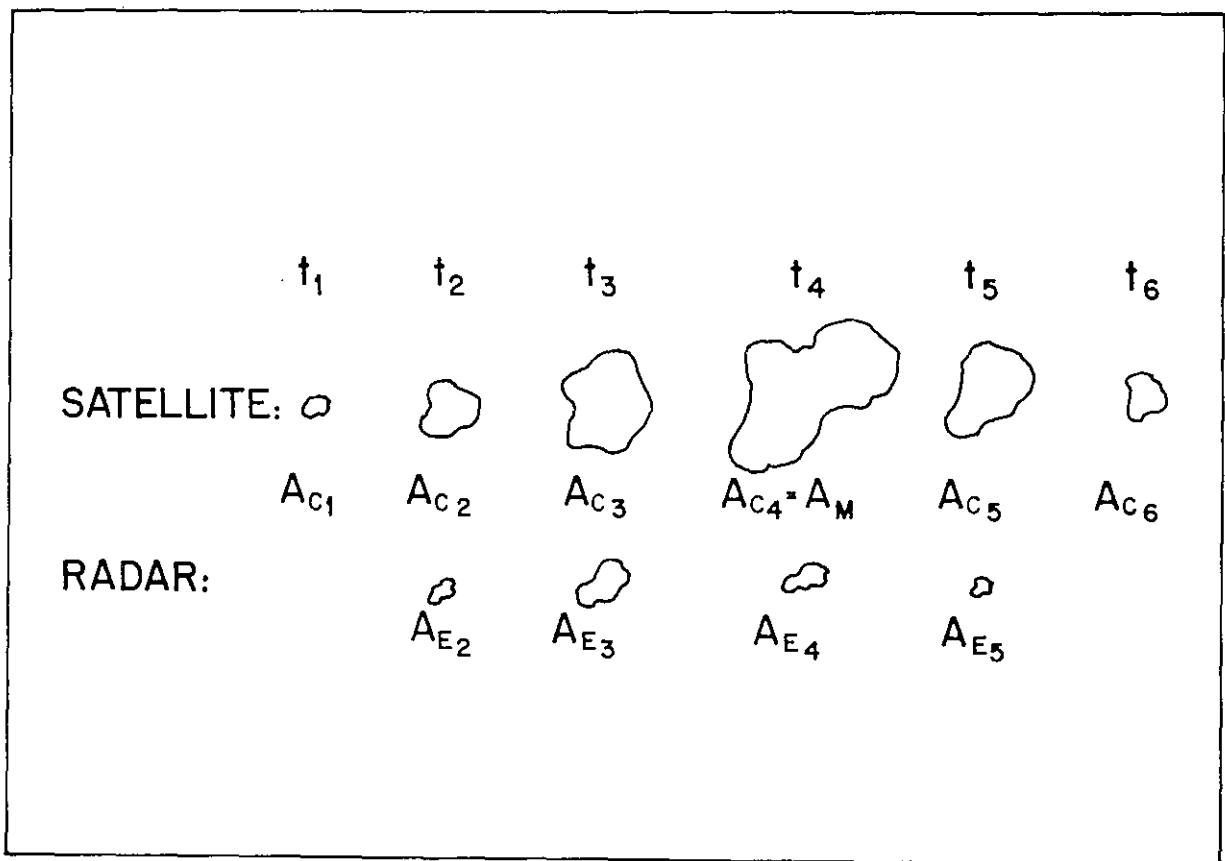 t₁ t₂ t₃ t₄ t₅ t₆
SATELLITE:
A_C₁ A_C₂ A_C₃ A_C₄ = A_M A_C₅ A_C₆
RADAR:
A_E₂ A_E₃ A_E₄ A_E₅